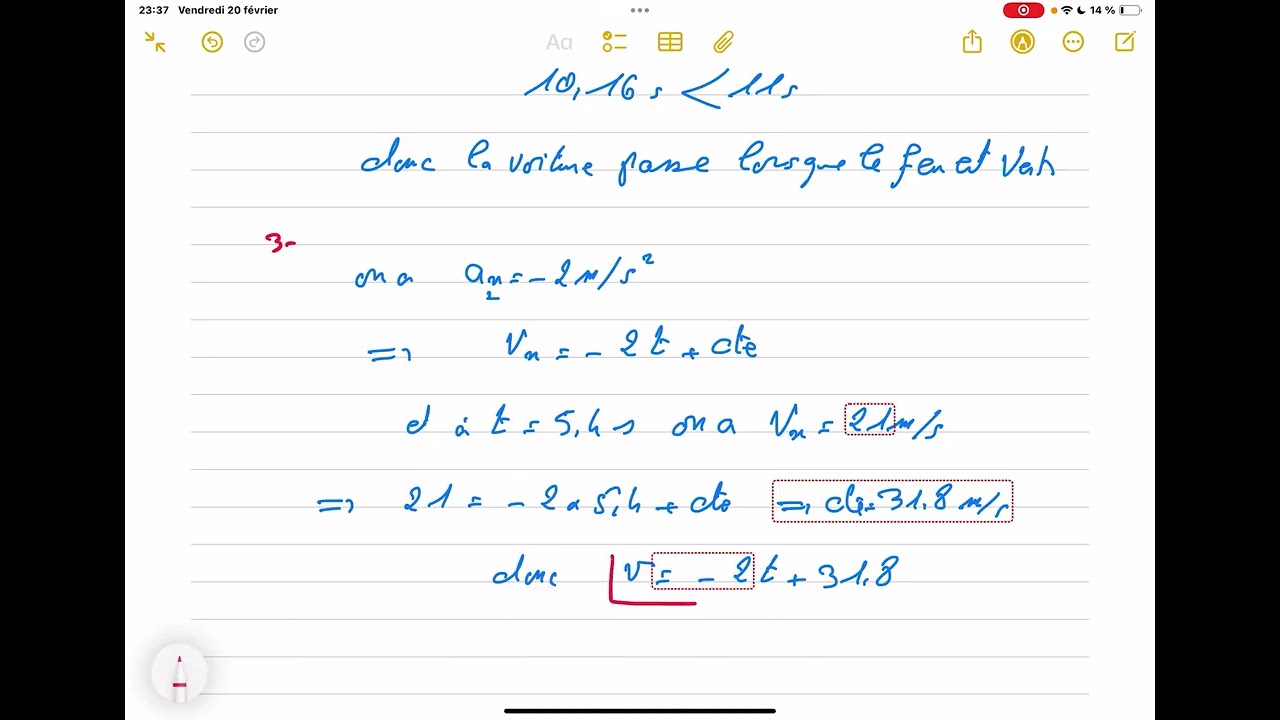 23:37 Vendredi 20 février
14 %
Aa
10,16 s < 11 s
donc la voiture passe lorsque le feu est vert
3-
on a ax2 = - 2 m/s²
=> Vx = - 2 t + cte
et à t = 5,4 s on a Vx = 21 m/s
=> 21 = - 2 x 5,4 + cte => cte = 31,8 m/s
donc v = - 2 t + 31,8